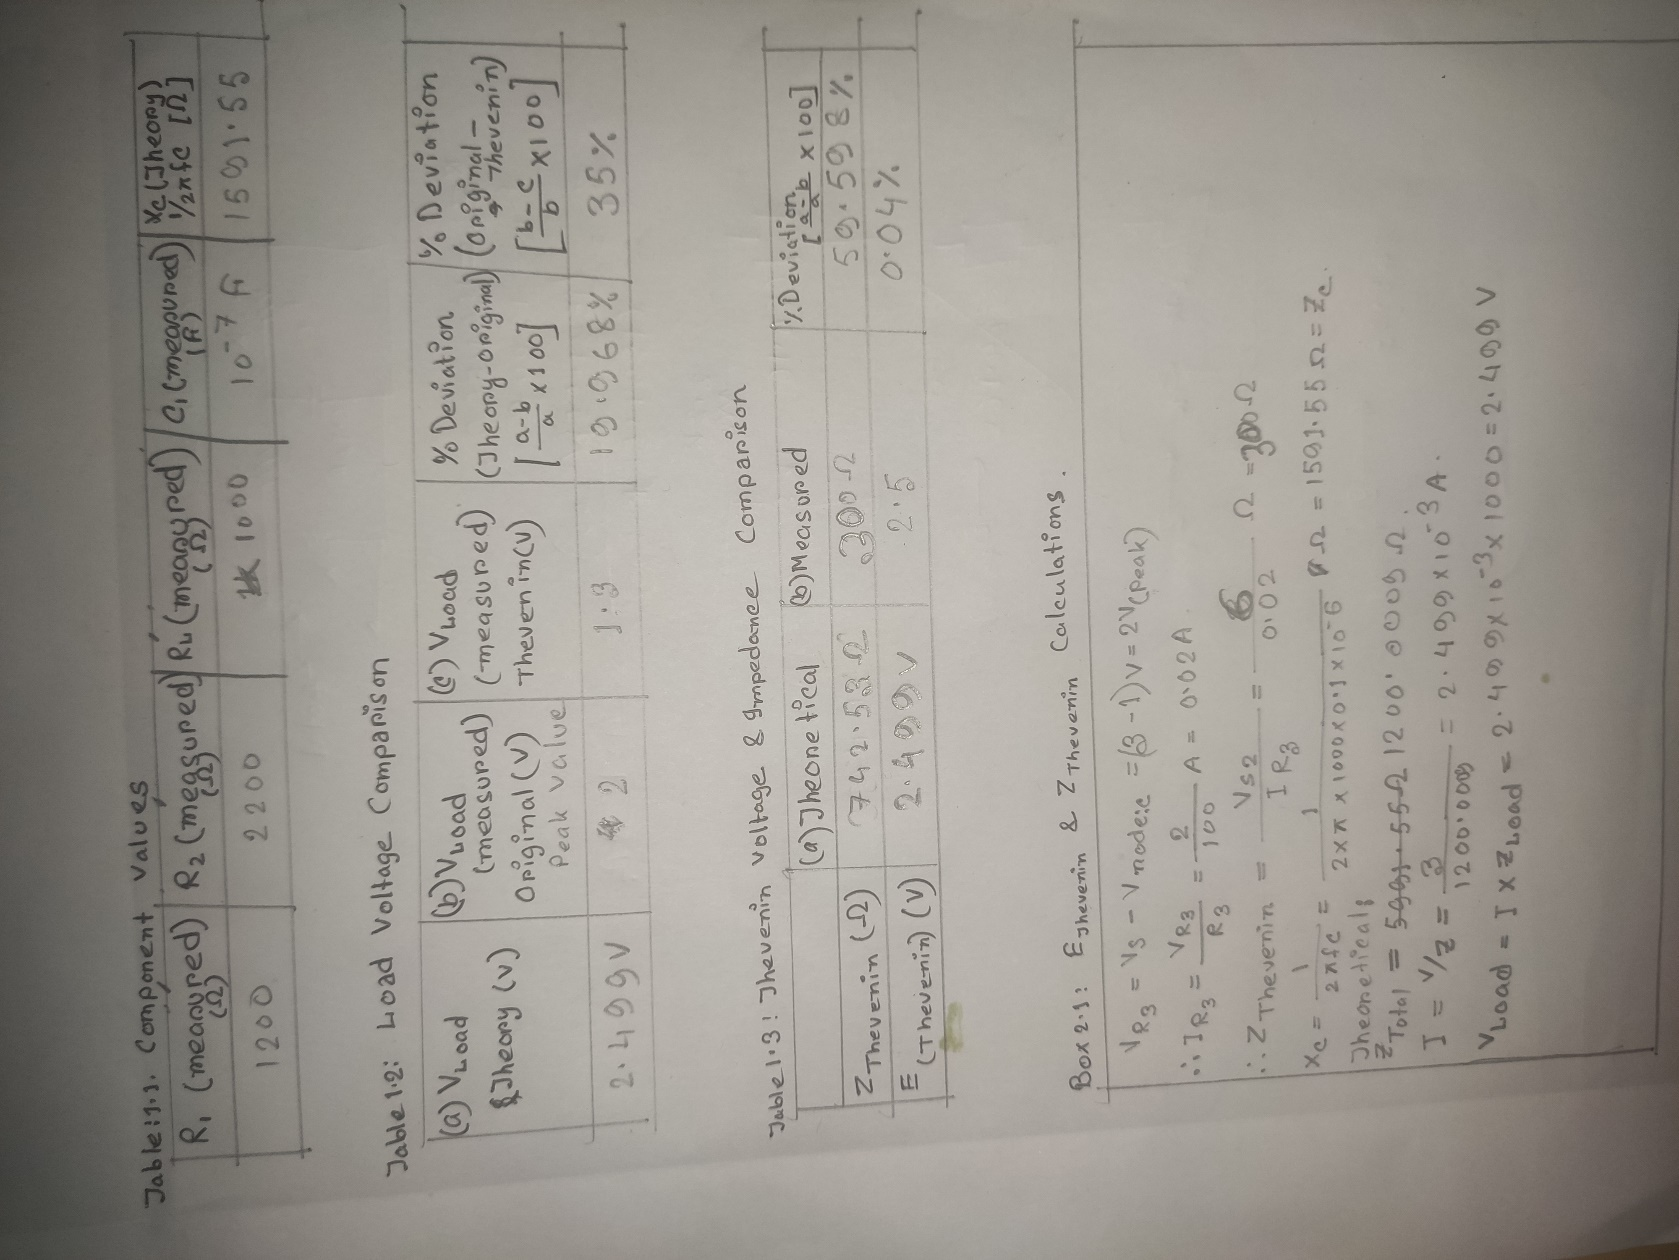 Table:1.1. Component values
R₁ (measured) (Ω) R₂ (measured) (Ω) RL (measured) (Ω) C₁ (measured) (F) Xc (Theory) 1/2πfc [Ω]
1200 2200 1000 10⁻⁷ F 1591.55
Table 1.2: Load voltage Comparison
(a) VLoad Theory (V) (b) VLoad (measured) Original (V) Peak value (c) VLoad (measured) Thevenin (V) % Deviation (Theory-original) [a-b/a x100] % Deviation (Original - Thevenin) [b-c/b x100]
2.499V 2 1.3 19.968% 35%
Table 1.3: Thevenin voltage & Impedance Comparison
(a) Theoretical (b) Measured % Deviation [a-b/a x100]
Z Thevenin (Ω) 742.53 Ω 300 Ω 59.598%
E (Thevenin) (V) 2.499 V 2.5 0.04%
Box 2.1: E Thevenin & Z Thevenin Calculations.
VR3 = Vs - Vnode:c = (3-1)V = 2V(peak)
∴ IR3 = VR3/R3 = 2/100 A = 0.02A
∴ Z Thevenin = Vs2/IR3 = 6/0.02 Ω = 300 Ω
Xc = 1/2πfc = 1/2×π×1000×0.1×10⁻⁶ Ω = 1591.55 Ω = Zc.
Theoretical:
ZTotal = 1200.0009 Ω
I = V/Z = 3/1200.0009 = 2.499×10⁻³ A.
VLoad = I × ZLoad = 2.499×10⁻³×1000 = 2.499 V